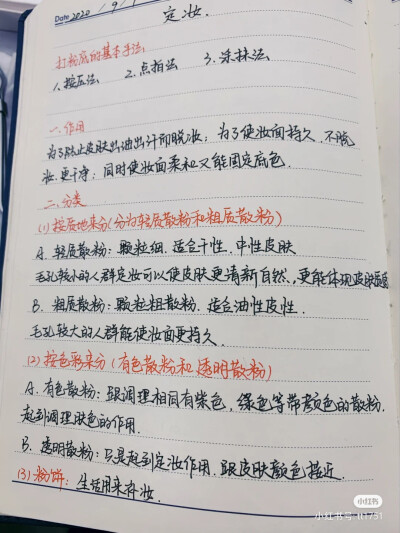 Date 2020 / 9 / 1
定妆.
打粉底的基本手法:
1、按压法 2、点拍法 3、涂抹法
一、作用
为了防止皮肤出油出汗而脱妆; 为了使妆面持久. 不脱
妆. 更干净; 同时使妆面柔和又能固定底色.
二、分类
(1) 按质地来分(分为轻质散粉和粗质散粉)
A. 轻质散粉: 颗粒细. 适合干性. 中性皮肤
毛孔较小的人群定妆可以使皮肤更清新自然, 更能体现皮肤质感
B. 粗质散粉: 颗粒粗散粉. 适合油性皮性.
毛孔较大的人群能使妆面更持久.
(2) 按色彩来分 (有色散粉和透明散粉)
A. 有色散粉: 跟调理相同有紫色, 绿色等带颜色的散粉.
起到调理肤色的作用.
B. 透明散粉: 只是起到定妆作用. 跟皮肤颜色接近.
(3) 粉饼: 生活用来补妆.
小红书
小红书号: